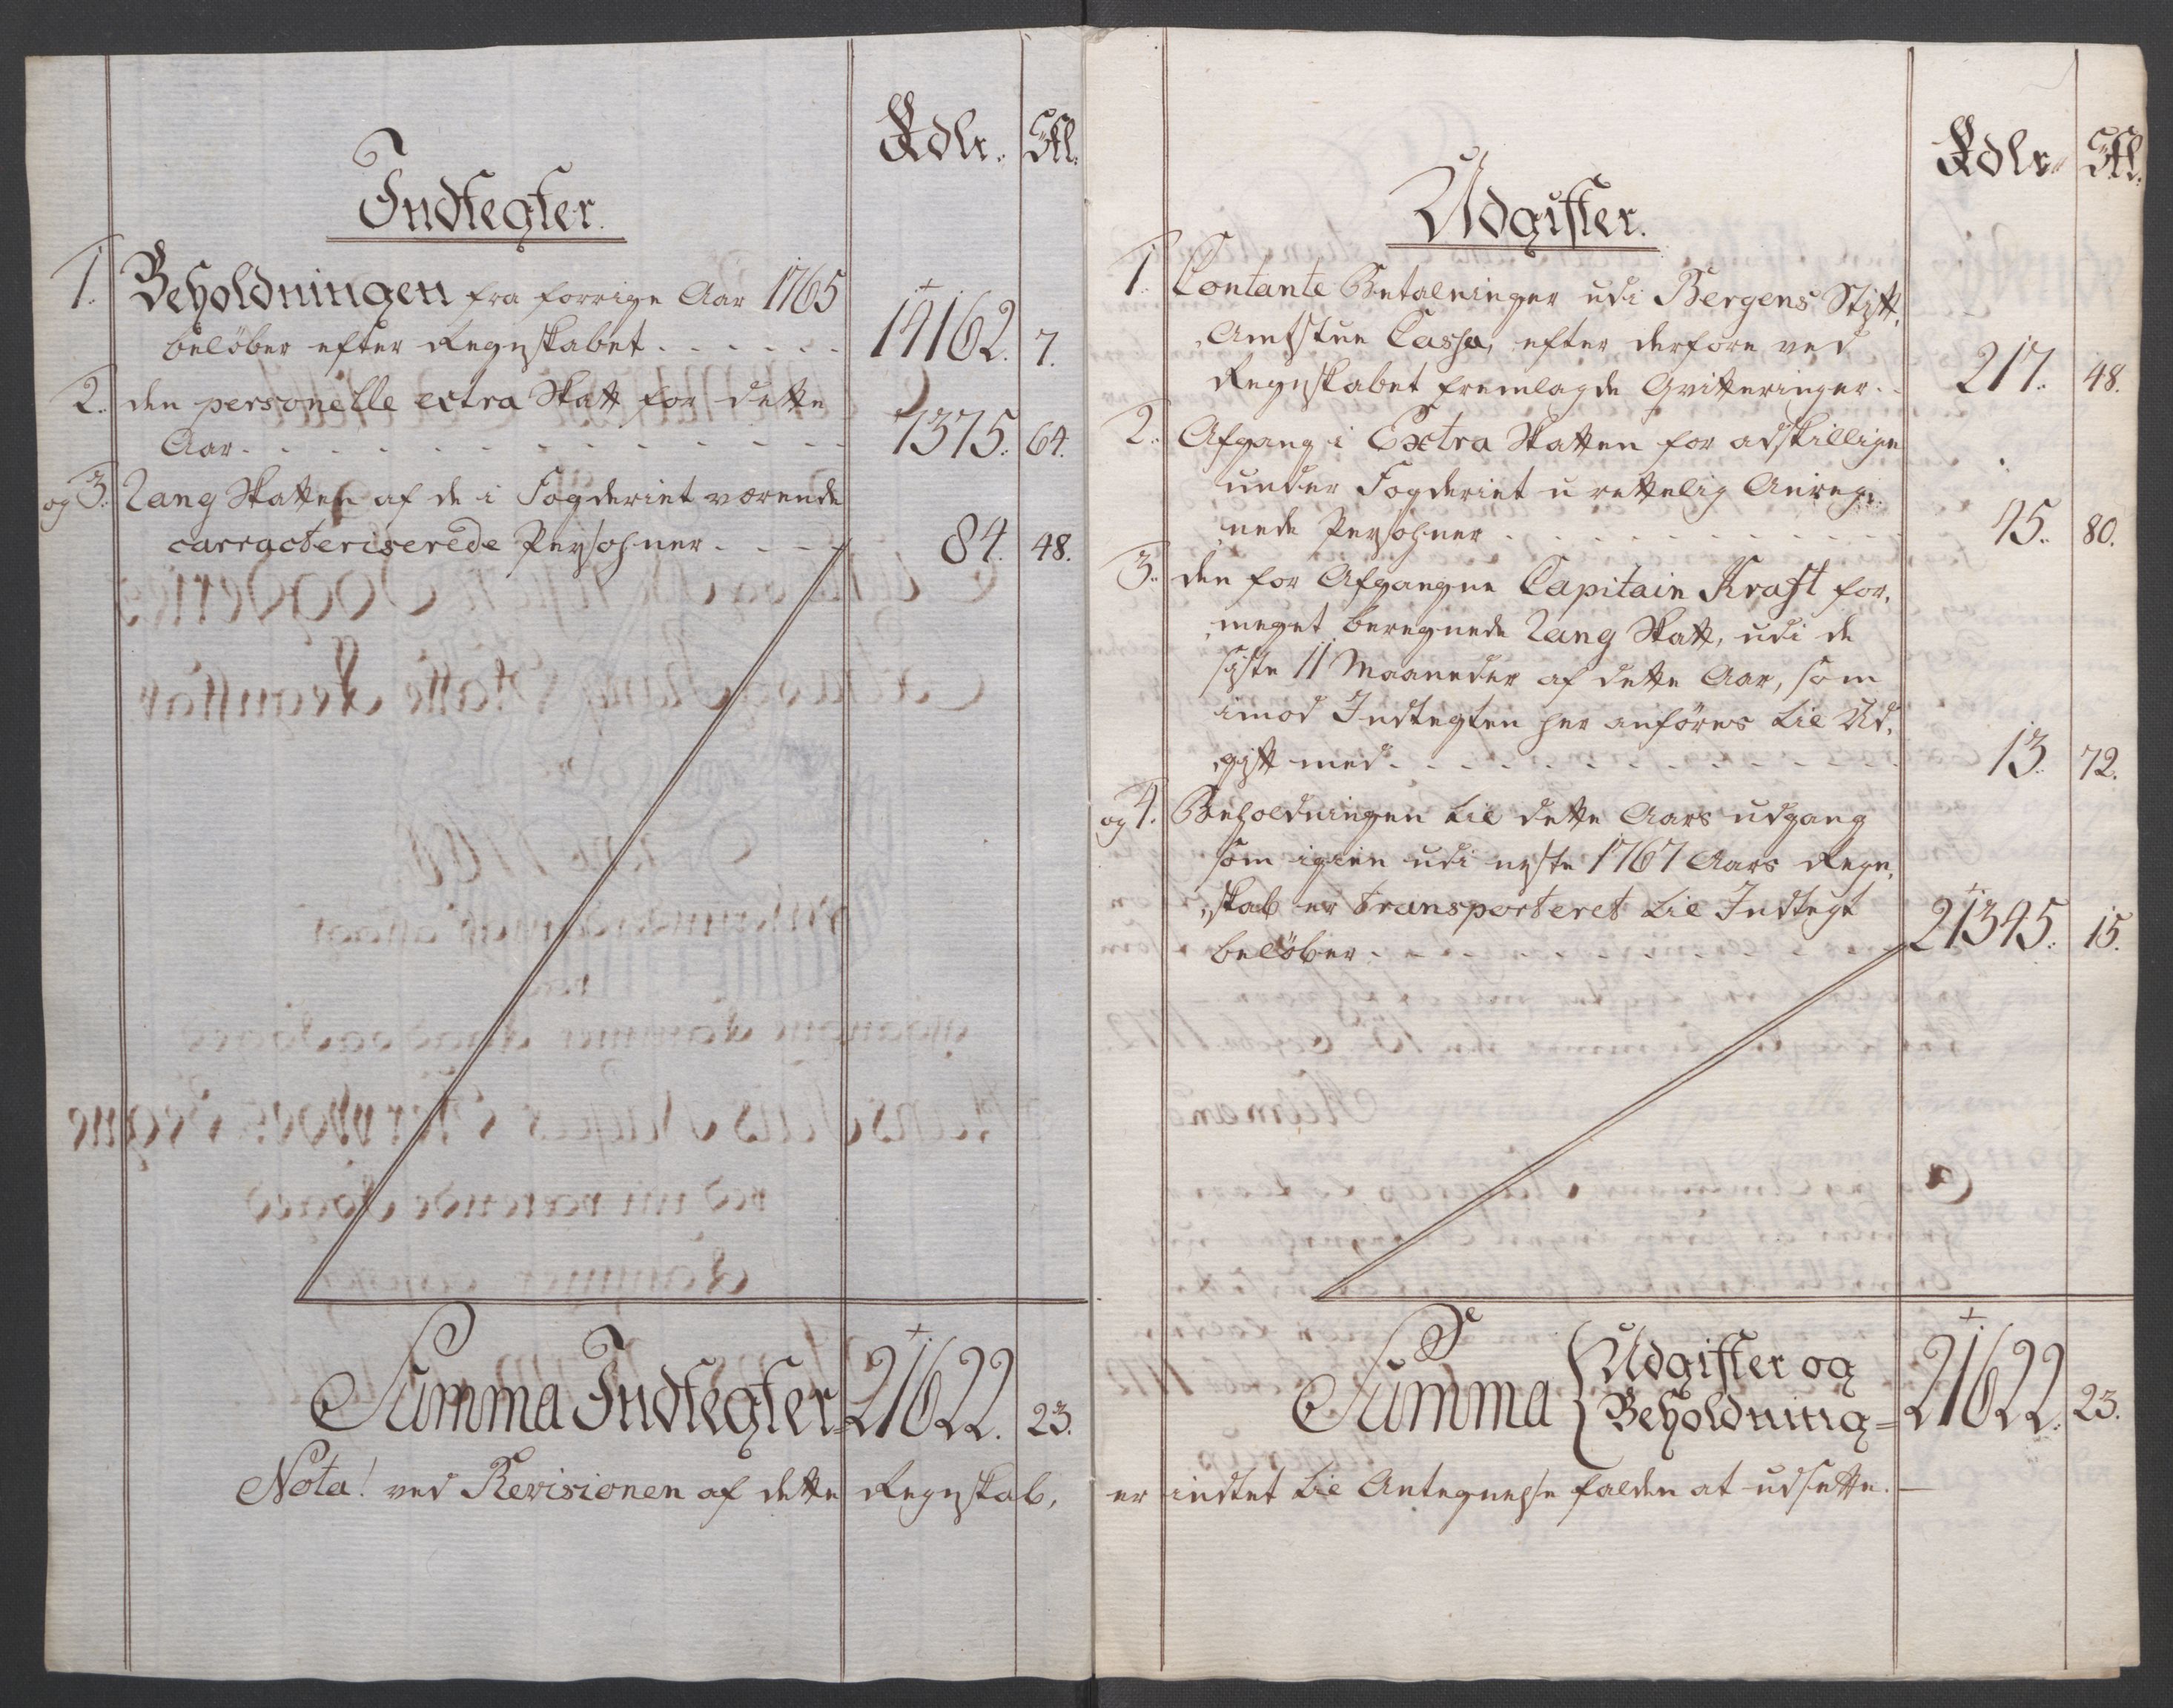 Rdlr. Sk.
Indtegter.
1. Beholdningen fra forrige Aar 1765
beløber efter Regnskabet . . . . . . 14162. 7.
2. den personelle extra Skatt for dette
Aar. . . . . . . . . . . 7375. 64.
og 3. Rang Skatten af de i Fogderiet værende
carracteriserede Persohner . . . . 84. 48.
Summa Indtegter = 21622. 23.
Nota! ved Revisionen af dette Regnskab,
Rdlr. Sk.
Udgifter.
1. Contante Betalninger udi Bergens Stift,
Amtstue Cassa, efter derfore ved
Regnskabet fremlagde Qvitteringer. . 217. 48.
2. Afgang i Extra Skatten for adskillige
under Fogderiet urettelig Anreg,,
nede Persohner . . . . . . . . . . 45. 80.
3. den for Afgangne Capitain Kraft for,
meget beregnede Rang Skatt, udi de
sidste 11 Maaneder af dette Aar, som
imod Indtegten her anføres til Ud,
gift med. . . . . . . . . . . 13. 72.
og 4. Beholdningen til dette Aars udgang
som igien udi neste 1767 Aars Regn,
skab er transporteret til Indtegt
beløber . . . . . . . . . . . 21345. 15.
Summa { Udgifter og
Beholdning = 21622. 23.
er indtet til Antegnelse falden at udsette. —